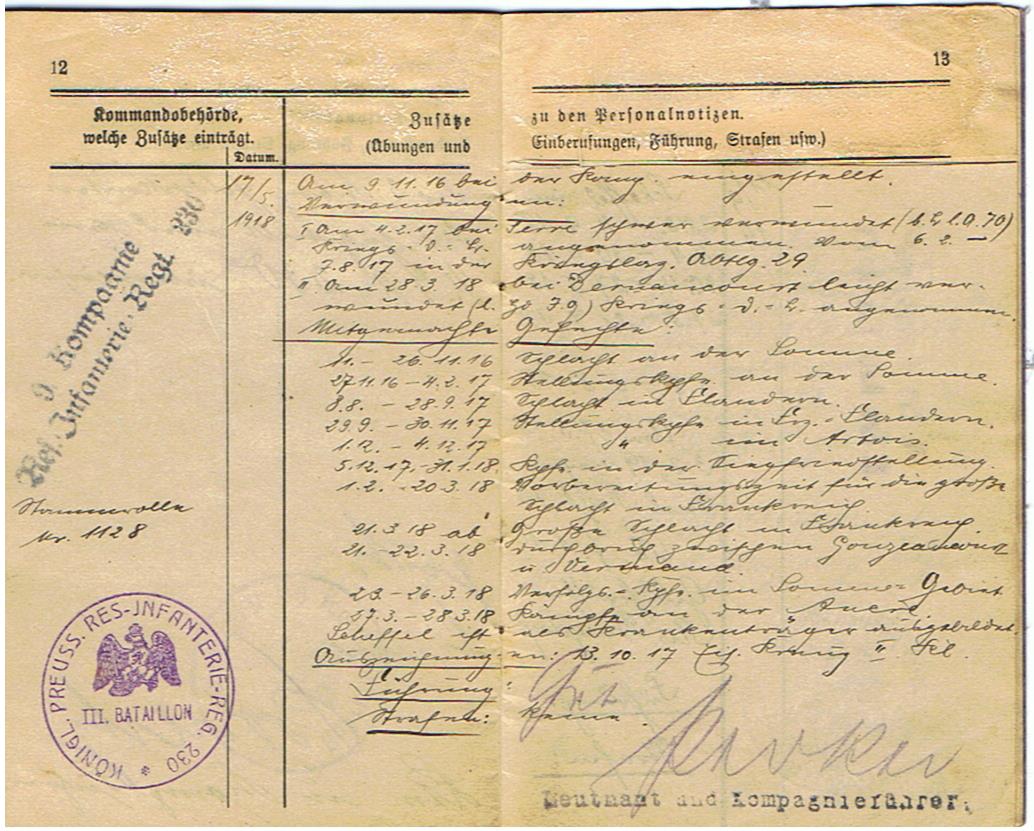 12
13
Kommandobehörde,
welche Zusätze einträgt.
Datum.
Zusätze zu den Personalnotizen.
(Übungen und Einberufungen, Führung, Strafen usw.)
17/5. Am 9.11.16 bei der Komp eingestellt.
Verwundungen:
1918 I Am 4.2.17 bei Serre schwer verwundet (b. L. l. O. 70)
Kriegs-D.-B. angenommen. Vom 6.2. –
7.8.17 in der Kriegslaz. Abtlg. 29
II Am 28.3.18 bei Dernancourt leicht ver-
wundet (l. 79) Kriegs-D.-B. angenommen.
Mitgemachte Gefechte:
1. – 26.11.16 Schlacht an der Somme.
27.11.16 – 4.2.17 Stellungskpfe. an der Somme.
8.8. – 28.9.17 Schlacht in Flandern.
29.9. – 30.11.17 Stellungskpfe in Frz. Flandern.
1.12. – 4.12.17 " im Artois.
5.12.17. – 31.1.18. Kpfe. in der Siegfriedstellung.
1.2. – 20.3.18 Vorbereitungszeit für die große
Schlacht in Frankreich
21.3.18 ab Große Schlacht in Frankreich.
21. – 22.3.18 Durchbruch zwischen Gouzeaucourt
u Vermand.
23. – 26.3.18 Verfolgs.-Kpfe. im Somme-Gebiet
27.3. – 28.3.18 Kämpfe an der Ancre.
Scheffel ist als Krankenträger ausgebildet.
Auszeichnungen: 13.10.17 Eis. Kreuz II Kl.
Führung: Gut
Strafen: keine.
Leutnant und Kompagnieführer.
9. Kompagnie
Res. Infanterie-Regt. 230
Stammrolle
Nr. 1128
KÖNIGL. PREUSS. RES-INFANTERIE-REG. 230 *
III. BATAILLON